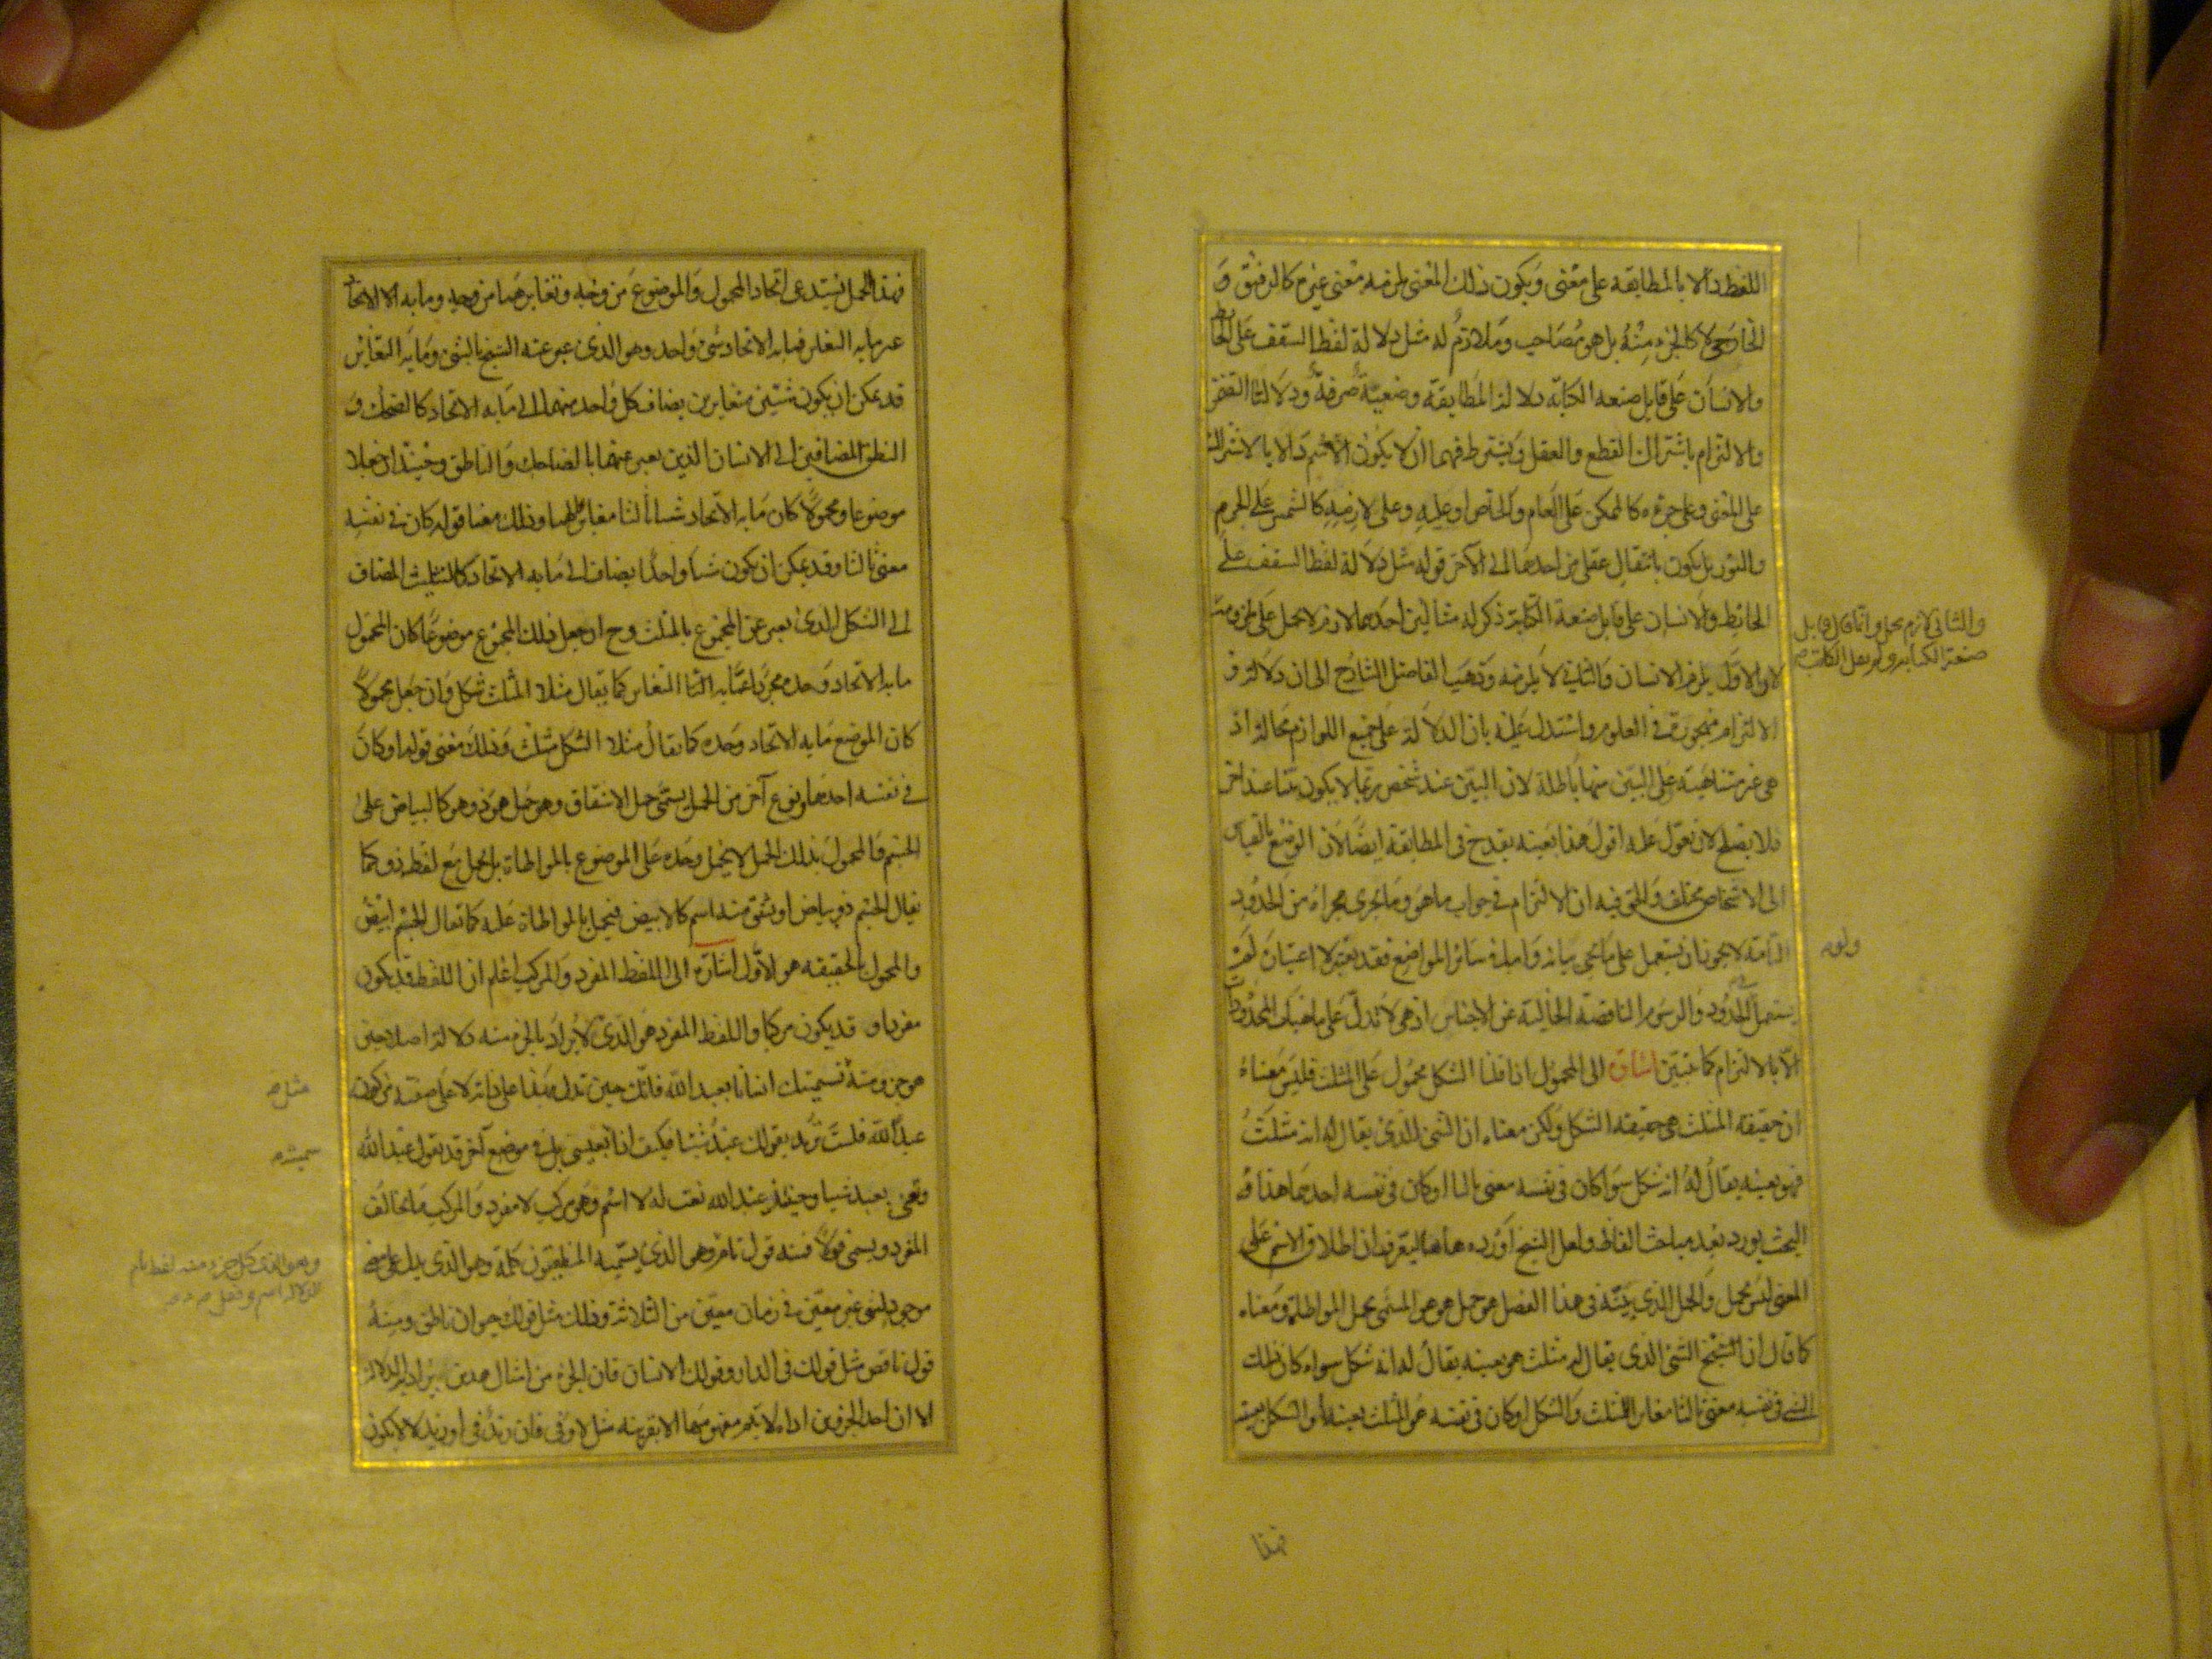 اللفظ دالا بالمطابقه على معنى ويكون ذلك المعنى يلزمه معنى غيره كالرفيق و
الخارجى لا كالجزء منه بل هو مصاحب وملازم له مثل دلالة لفظ السقف على الحايط
والانسان على قابل صنعه الكتابه دلالة المطابقة وضعية صرفة ودلالتا التضمن
والالتزام باشتراك القطع والعقل ويشترط فيهما ان لا يكون الاسم دالا بالاشتراك
على المعنى وعلى جزءه كالممكن على العام والخاص او عليه وعلى لازمه كالشمس على الجرم
والنور بل يكون بانتقال عقلى من احدهما الى الآخر قوله مثل دلالة لفظ السقف على
الحايط والانسان على قابل صنعة الكتابة ذكر له مثالين احدهما لازم لا يحمل على ملزومه
والاول يلزم الانسان والثانى لا يلزمه وذهب الفاضل الشارح الى ان دلالة
الالتزام مهجورة فى العلوم واستدل عليه بان الدلالة على جميع اللوازم محالة اذ
هى غير متناهية وعلى البين منها باطلة لان البين عند شخص ربما لا يكون بينا عند اخر
فلا يصلح لان يعول عليه اقول هذا بعينه يقدح فى المطابقة ايضا لان الوضع بالقياس
الى الاشخاص مختلف والحق فيه ان الالتزام فى جواب ما هو وما يجرى مجراه من الحدود
التامة لا يجوز ان يستعمل على ما يجى بيانه واما فى سائر المواضع فقد يعتبر لا اعتبار
يستعمل الحدود والرسوم الناقصة الخالية عن الاجناس اذ هى لا تدل على ماهيات المحدودات
الا بالالتزام كما تبين اشارة الى المحمول اذا قلنا الشكل محمول على المثلث فليس معناه
ان حقيقه المثلث هى حقيقه الشكل ولكن معناه ان الشى الذى يقال له انه مثلث
فهو بعينه يقال له انه شكل سوا كان فى نفسه معنى ثالثا او كان فى نفسه احدهما هذا
البحث يورد بعد مباحث الفاظ ولعل الشيخ اورده هاهنا ليعرف ان اطلاق الاسم على
المعنى ليس بحمل والحمل الذى بينه فى هذا الفصل هو حمل هو هو المسمى بحمل المواطاة ومعناه
كما قال ان الشيخ الشى الذى يقال له مثلث هو بعينه يقال له انه شكل سواء كان ذلك
الشى فى نفسه معنى ثالثا مغاير المثلث والشكل او كان فى نفسه هو المثلث بعينه او الشكل بعينه
والثانى لازم يحمل
صنعة الكتابة ولم يقل الكاتب
فهذا
فهذا الحمل يستدعى اتحاد المحمول والموضوع من وجه وتغايرهما من وجه وما به الاتحاد
غير ما به التغاير فما به الاتحاد شى واحد وهو الذى عبر عنه الشيخ بالشى وما به التغاير
قد يمكن ان يكون شيئين متغايرين يضاف كل واحد منهما الى ما به الاتحاد كالضحك و
النطق المضافين الى الانسان الذين يعبر عنهما بالضاحك والناطق وحينئذ ان جعلا
موضوعا ومحمولا كان ما به الاتحاد شيا ثالثا مغايرا لهما وذلك معنا قوله كان فى نفسه
معنى ثالثا وقد يمكن ان يكون شيا واحدا يضاف الى ما به الاتحاد كالتثليث المضاف
الى الشكل الذى يعبر عن المجموع بالمثلث وح ان جعل ذلك المجموع موضوعا كان المحمول
ما به الاتحاد وحده مجردا عما به التغاير كما يقال مثلا المثلث شكل وان جعل محمولا
كان الموضع ما به الاتحاد وحده كما يقال مثلا الشكل مثلث وذلك معنى قوله او كان
فى نفسه احدهما ونوع آخر من الحمل يسمى حمل الاشتقاق وهو حمل هو ذو هو كالبياض على
الجسم والمحمول بذلك الحمل لا يحمل وحده على الموضوع بالمواطاة بل يحمل مع لفظ ذو كما
يقال الجسم ذو بياض او يشتق منه اسم كالابيض فيحمل بالمواطاة عليه كما تقال الجسم ابيض
والمحمول بالحقيقه هو الاول اشارة الى اللفظ المفرد والمركب اعلم ان اللفظ قد يكون
مفردا و قد يكون مركبا واللفظ المفرد هو الذى لا يراد بالجزء منه دلالة اصلا حين
هو جزء منه تسميتك انسانا بعبد الله فانك حين تدل بهذا على ذاته لا على صفته من كونه
عبد الله فلست تريد بقولك عبد شيئا فكيف اذا بعيسى بل فى موضع آخر قد يقول عبد الله
وتعنى بعبد شيا وحينئذ عبد الله نعت له لا اسم وهو مركب لا مفرد والمركب ما يخالف
المفرد ويسمى قولا فمنه قول تام وهى الذى يسميه المنطقيون كلمة وهو الذى يدل على معنى
موجود لشى غير معين فى زمان معين من الثلاثة وذلك مثل قولك حيوان ناطق ومنه
قول ناقص مثل قولك فى الدار وقولك لا انسان فان الجزء من امثال هذين يراد به الدلالة
الا ان احد الجزءين اداة لا يتم مفهومها الا بقرينة مثل لا وفى فان زيد فى او زيد لا لا يكون
مثل
سميته
وهو الذى كل جزء منه لفظ تام
الدلالة اسم او فعل